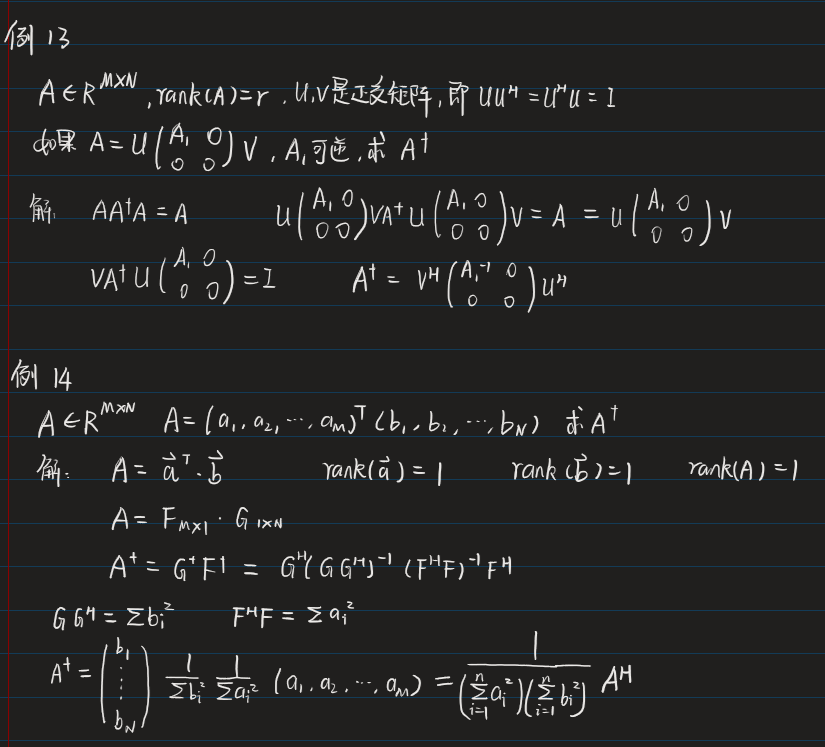 例 13
A ∈ R^{M×N}, rank(A)=r . U,V是正交矩阵, 即 UU^H = U^H U = I
如果 A = U (A₁ 0; 0 0) V , A₁可逆, 求 A†
解: AA†A = A U (A₁ 0; 0 0) VA†U (A₁ 0; 0 0) V = A = U (A₁ 0; 0 0) V
VA†U (A₁ 0; 0 0) = I A† = V^H (A₁⁻¹ 0; 0 0) U^H
例 14
A ∈ R^{M×N} A = (a₁, a₂, ⋯, a_M)^T (b₁, b₂, ⋯, b_N) 求 A†
解: A = a⃗^T · b⃗ rank(a⃗) = 1 rank(b⃗) = 1 rank(A) = 1
A = F_{M×1} · G_{1×N}
A† = G†F† = G^H(GG^H)⁻¹ (F^H F)⁻¹ F^H
GG^H = Σb_i² F^H F = Σa_i²
A† = (b₁ ⋮ b_N) 1/Σb_i² 1/Σa_i² (a₁, a₂, ⋯, a_M) = 1/((Σ_{i=1}^{n} a_i²)(Σ_{i=1}^{n} b_i²)) A^H